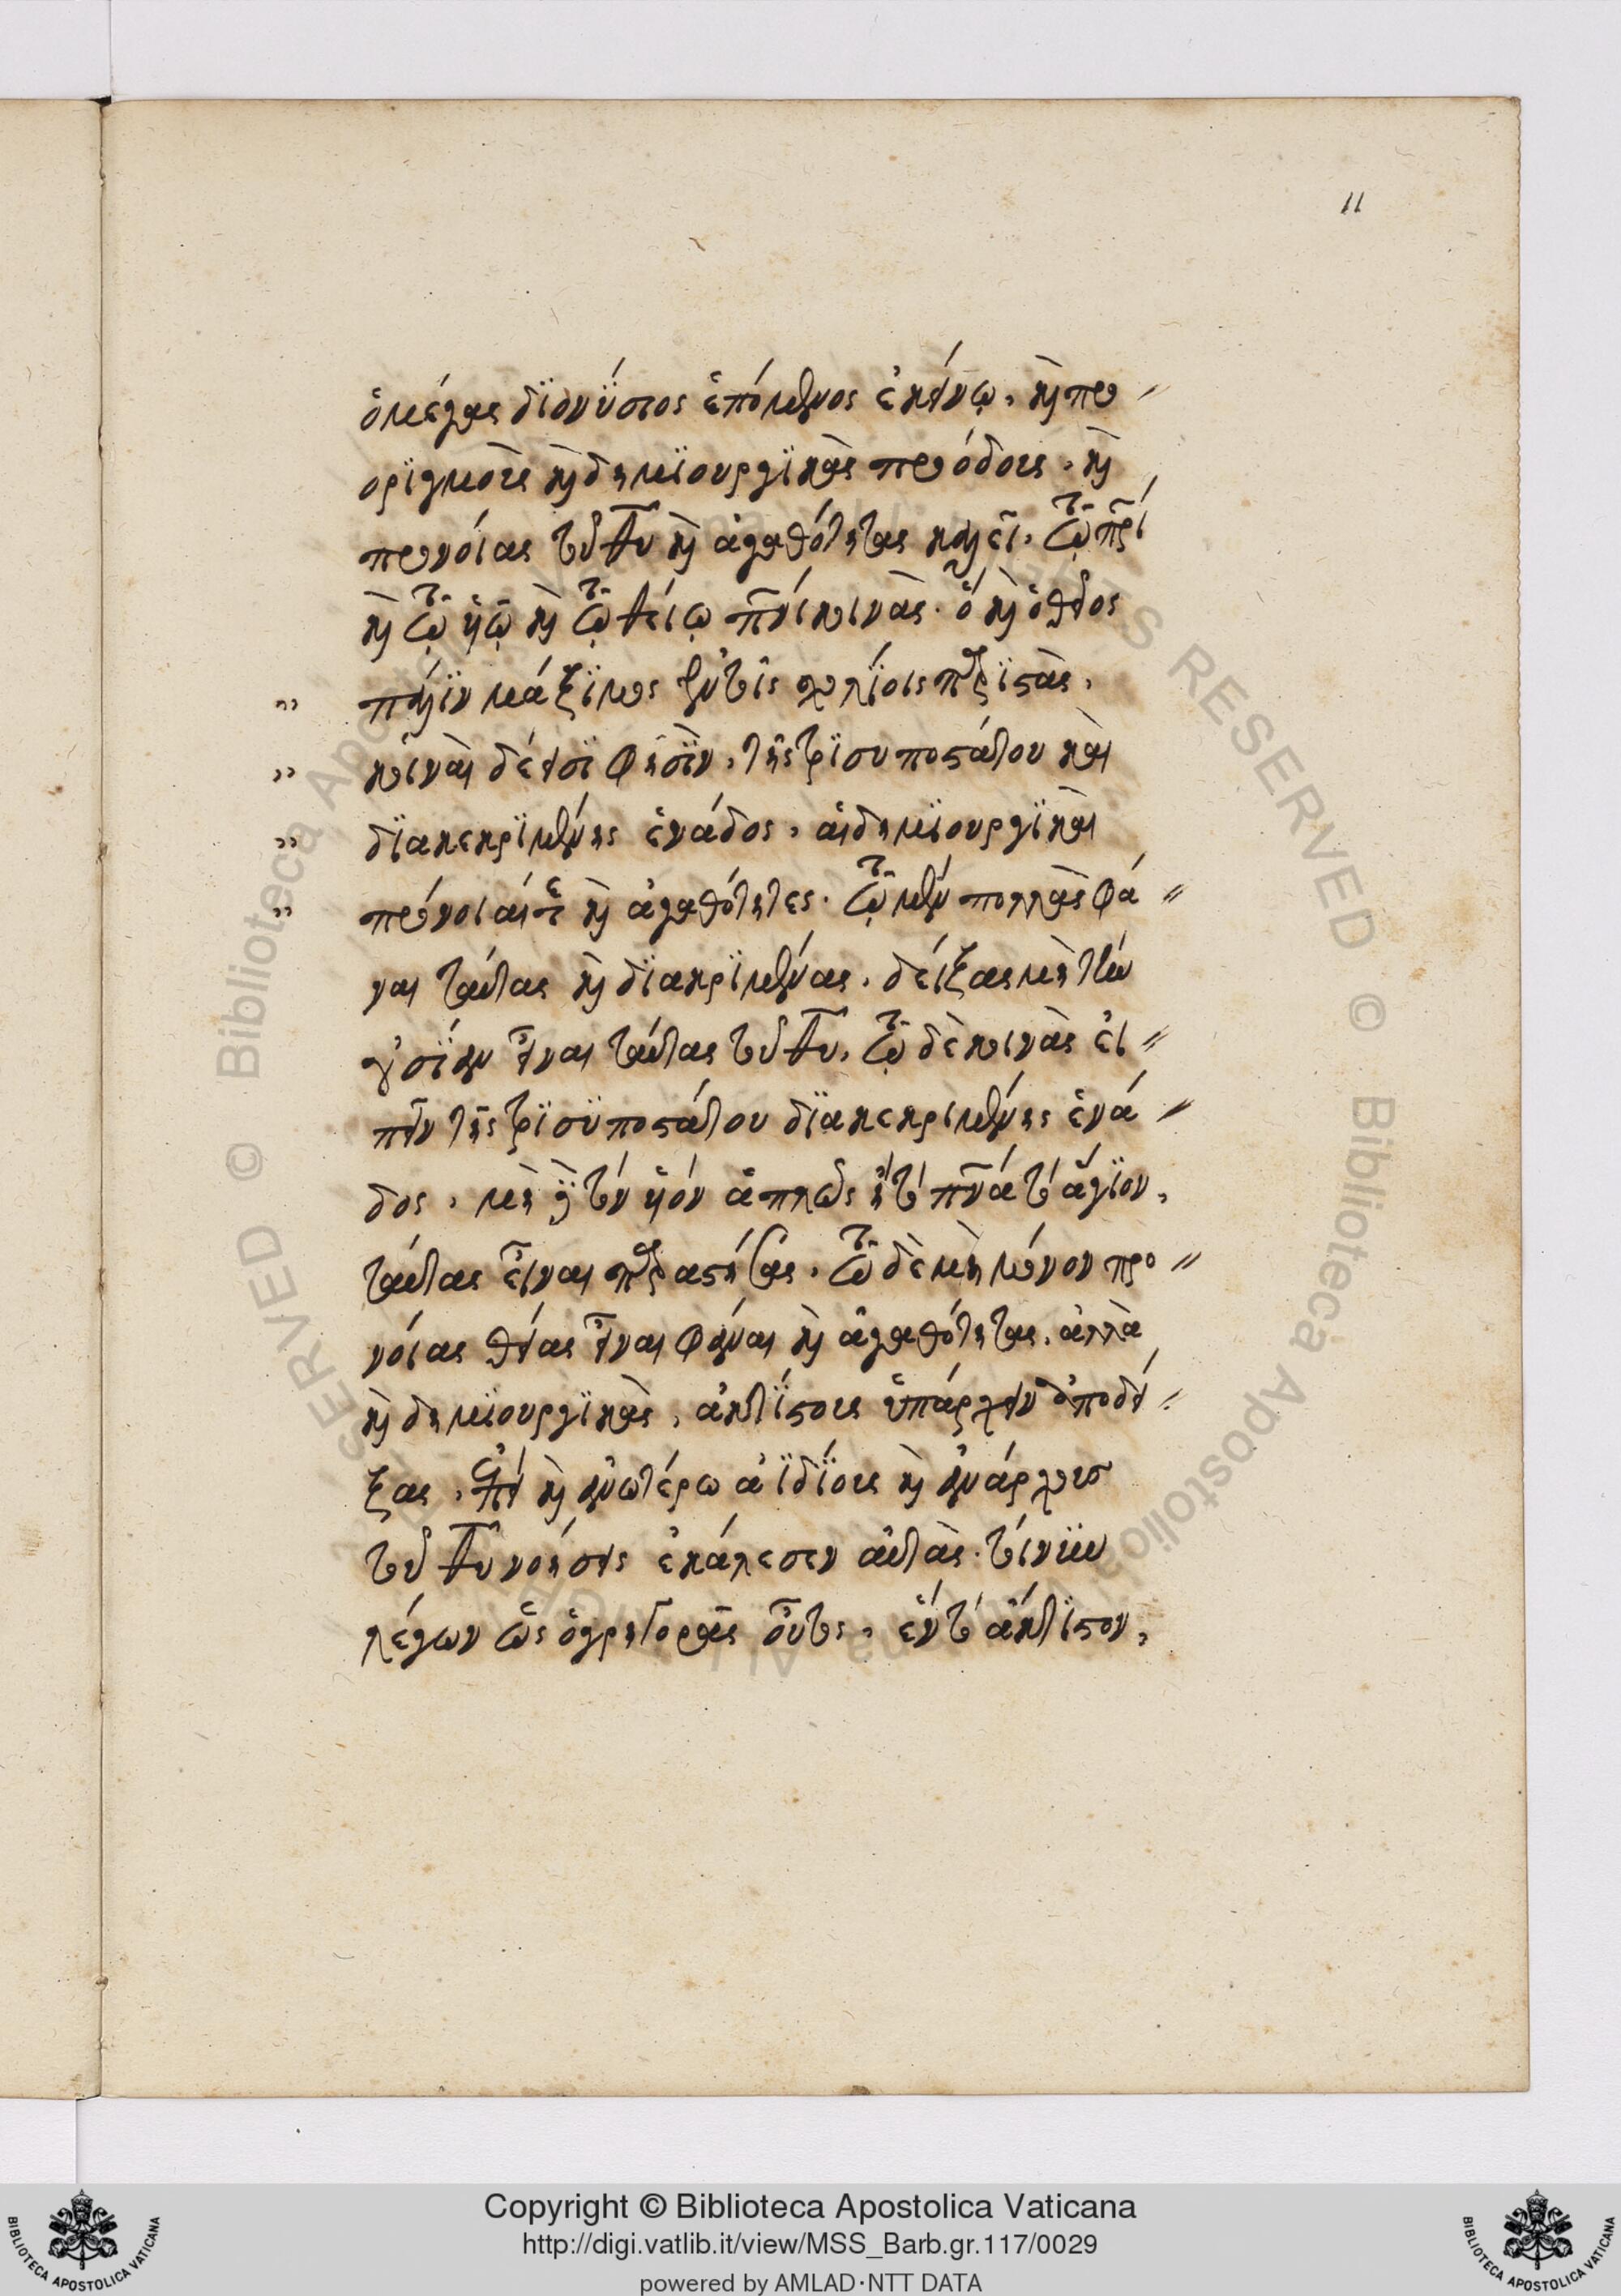 11
ὁ μέγας διονύσιος ἑπόμενος ἐκείνω, καὶ προ
ορισμοὺς καὶ δημιουργικὰς προόδους, καὶ
προνοίας τοῦ θυ καὶ ἀγαθότητας καλεῖ, τῷ πρὶ
καὶ τῷ υἱῷ καὶ τῷ θείῳ πνὶ κοινάς. ὃ καὶ ὁ θεῖος
πάλιν μάξιμος ἐν τοῖς σχολίοις παριστάς,
κοιναὶ δέ εἰσί φησιν, τῆς τρισυποστάτου καὶ
διακεκριμένης ἑνάδος, αἱ δημιουργικαὶ
πρόνοιαί τε καὶ ἀγαθότητες. τῷ μὲν πολλὰς φά
ναι ταύτας καὶ διακριμένας, δείξας μὴ τὴν
οὐσίαν εἶναι ταύτας τοῦ θυ, τῷ δὲ κοινὰς εἰ
πεῖν τῆς τρισυποστάτου διακεκριμένης ἑνά
δος, μὴ τὸν υἱὸν ἁπλῶς ἢ τὸ πνα τὸ ἅγιον,
ταύτας εἶναι παραστήσας. τῷ δὲ μὴ μόνον προ
νοίας θείας εἶναι φάναι καὶ ἀγαθότητας, ἀλλὰ
καὶ δημιουργικάς, ἀκτίστους ὑπάρχειν ἀποδεί
ξας, ἐπεὶ καὶ ἀνωτέρω ἀϊδίους καὶ ἀνάρχους
τοῦ θυ νοήσεις ἐκάλεσεν αὐτάς. τί νῦν
λέγων ὡς ὁ γρηγορᾶς οὗτος, ἓν τὸ ἄκτιστον,
Copyright © Biblioteca Apostolica Vaticana
http://digi.vatlib.it/view/MSS_Barb.gr.117/0029
powered by AMLAD·NTT DATA
BIBLIOTECA APOSTOLICA VATICANA
BIBLIOTECA APOSTOLICA VATICANA